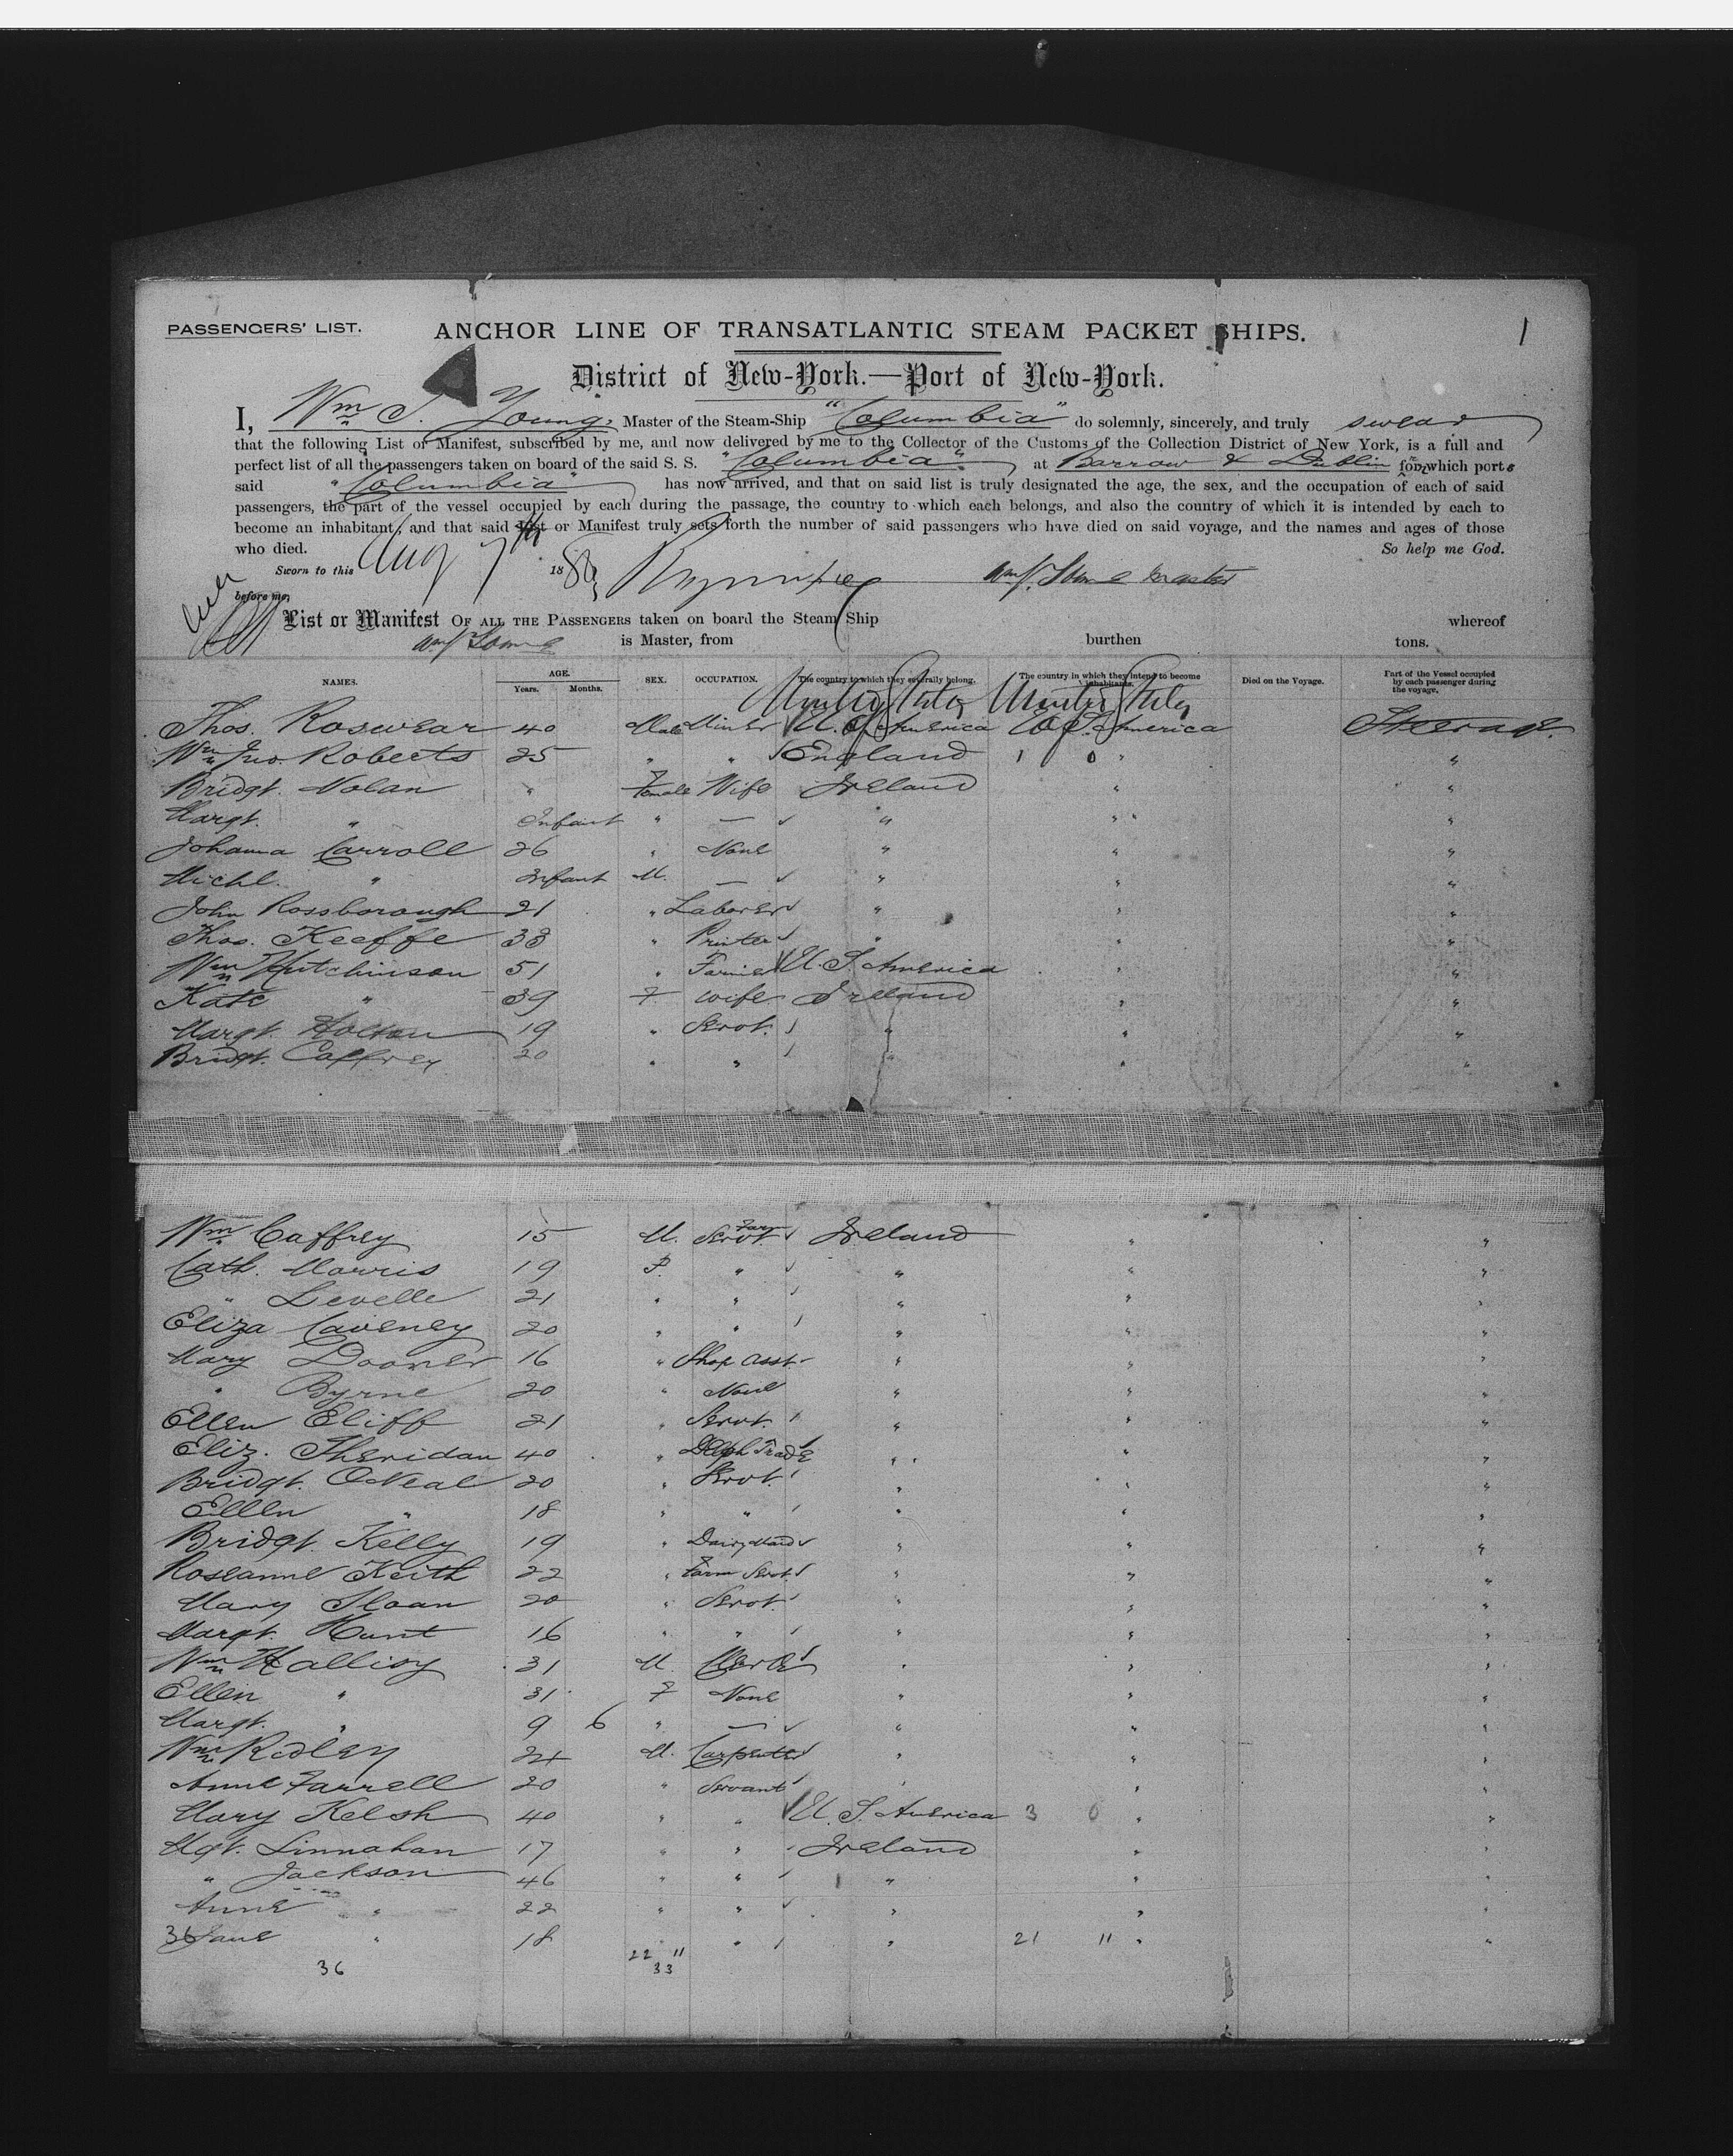 PASSENGERS' LIST. ANCHOR LINE OF TRANSATLANTIC STEAM PACKET SHIPS. 1
District of New-York.—Port of New-York.
I, Wm S. Young, Master of the Steam-Ship "Columbia" do solemnly, sincerely, and truly swear
that the following List or Manifest, subscribed by me, and now delivered by me to the Collector of the Customs of the Collection District of New York, is a full and
perfect list of all the passengers taken on board of the said S. S. "Columbia" at Barrow & Dublin from which ports
said "Columbia" has now arrived, and that on said list is truly designated the age, the sex, and the occupation of each of said
passengers, the part of the vessel occupied by each during the passage, the country to which each belongs, and also the country of which it is intended by each to
become an inhabitant; and that said List or Manifest truly sets forth the number of said passengers who have died on said voyage, and the names and ages of those
who died. So help me God.
Sworn to this Aug 7th 18 master
before me,
List or Manifest OF ALL THE PASSENGERS taken on board the Steam Ship whereof
is Master, from burthen tons.
NAMES. AGE. Years. Months. SEX. OCCUPATION. The country to which they severally belong. The country in which they intend to become inhabitants. Died on the Voyage. Part of the Vessel occupied by each passenger during the voyage.
United States United States
Thos. Roswear 40 Male Miner U. S. America U. S. America Steerage
Wm Jno. Roberts 25 " " England 1 0 " "
Bridgt. Nolan " Female Wife Ireland " "
Margt. " Infant " — " " "
Johanna Carroll 26 " None " " "
Michl. " Infant M. — " " "
John Rossborough 21 " Laborer " " "
Thos. Keeffe 33 " Printer " " "
Wm Hutchinson 51 " Farmer U. S. America " "
Kate " 39 F wife Ireland " "
Margt. Holton 19 " Servt. " " "
Bridgt. Caffrey 20 " " " " "
Wm Caffrey 15 M. Farm Servt. Ireland " "
Cath. Morris 19 F. " " " "
" Levelle 21 " " " " "
Eliza Caveney 20 " " " " "
Mary Dooner 16 " Shop Asst. " " "
" Byrne 20 " None " " "
Ellen Eliff 21 " Servt. " " "
Eliz. Sheridan 40 " Delph Trade " " "
Bridgt. ONeal 20 " Servt. " " "
Ellen " 18 " " " " "
Bridgt. Kelly 19 " Dairymaid " " "
Roseanne Keith 22 " Farm Servt. " " "
Mary Sloan 20 " Servt. " " "
Margt. Hunt 16 " " " " "
Wm Hallioy 31 M. Clerk " " "
Ellen " 31 F None " " "
Margt. " 9 6 " — " " "
Wm Ridley 24 M. Carpenter " " "
Anne Farrell 20 " Servant " " "
Mary Kelsh 40 " " U. S. America 3 0 " "
Mgt. Linnahan 17 " " Ireland " "
" Jackson 46 " " " " "
Anne " 22 " " " " "
36 Jane " 18 " " 21 11 " "
36 22 11
33